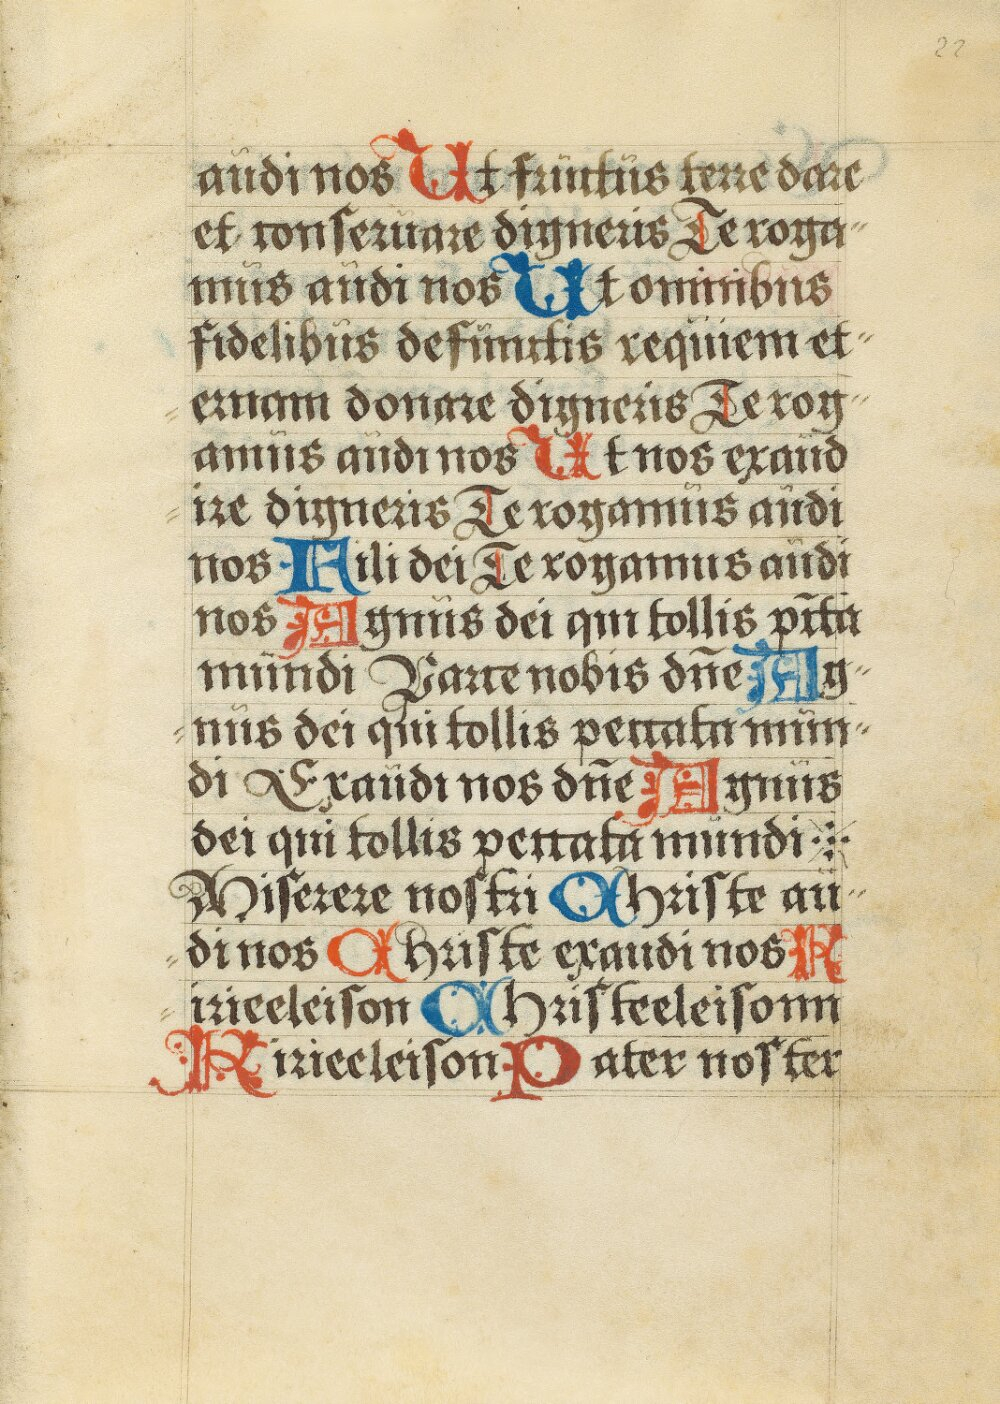 22
audi nos Ut fructus terre dare
et conservare digneris Te roga-
mus audi nos Ut omnibus
fidelibus defunctis requiem et-
ernam donare digneris Te rog-
amus audi nos Ut nos exaud
ire digneris Te rogamus audi
nos Fili dei Te rogamus audi
nos Agnus dei qui tollis pc̄ta
mundi Parce nobis dn̄e Ag-
nus dei qui tollis peccata mun-
di Exaudi nos dn̄e Agnus
dei qui tollis peccata mundi
Miserere nostri Christe au-
di nos Christe exaudi nos K
irieeleison Christeeleisonn
Kirieeleison Pater noster